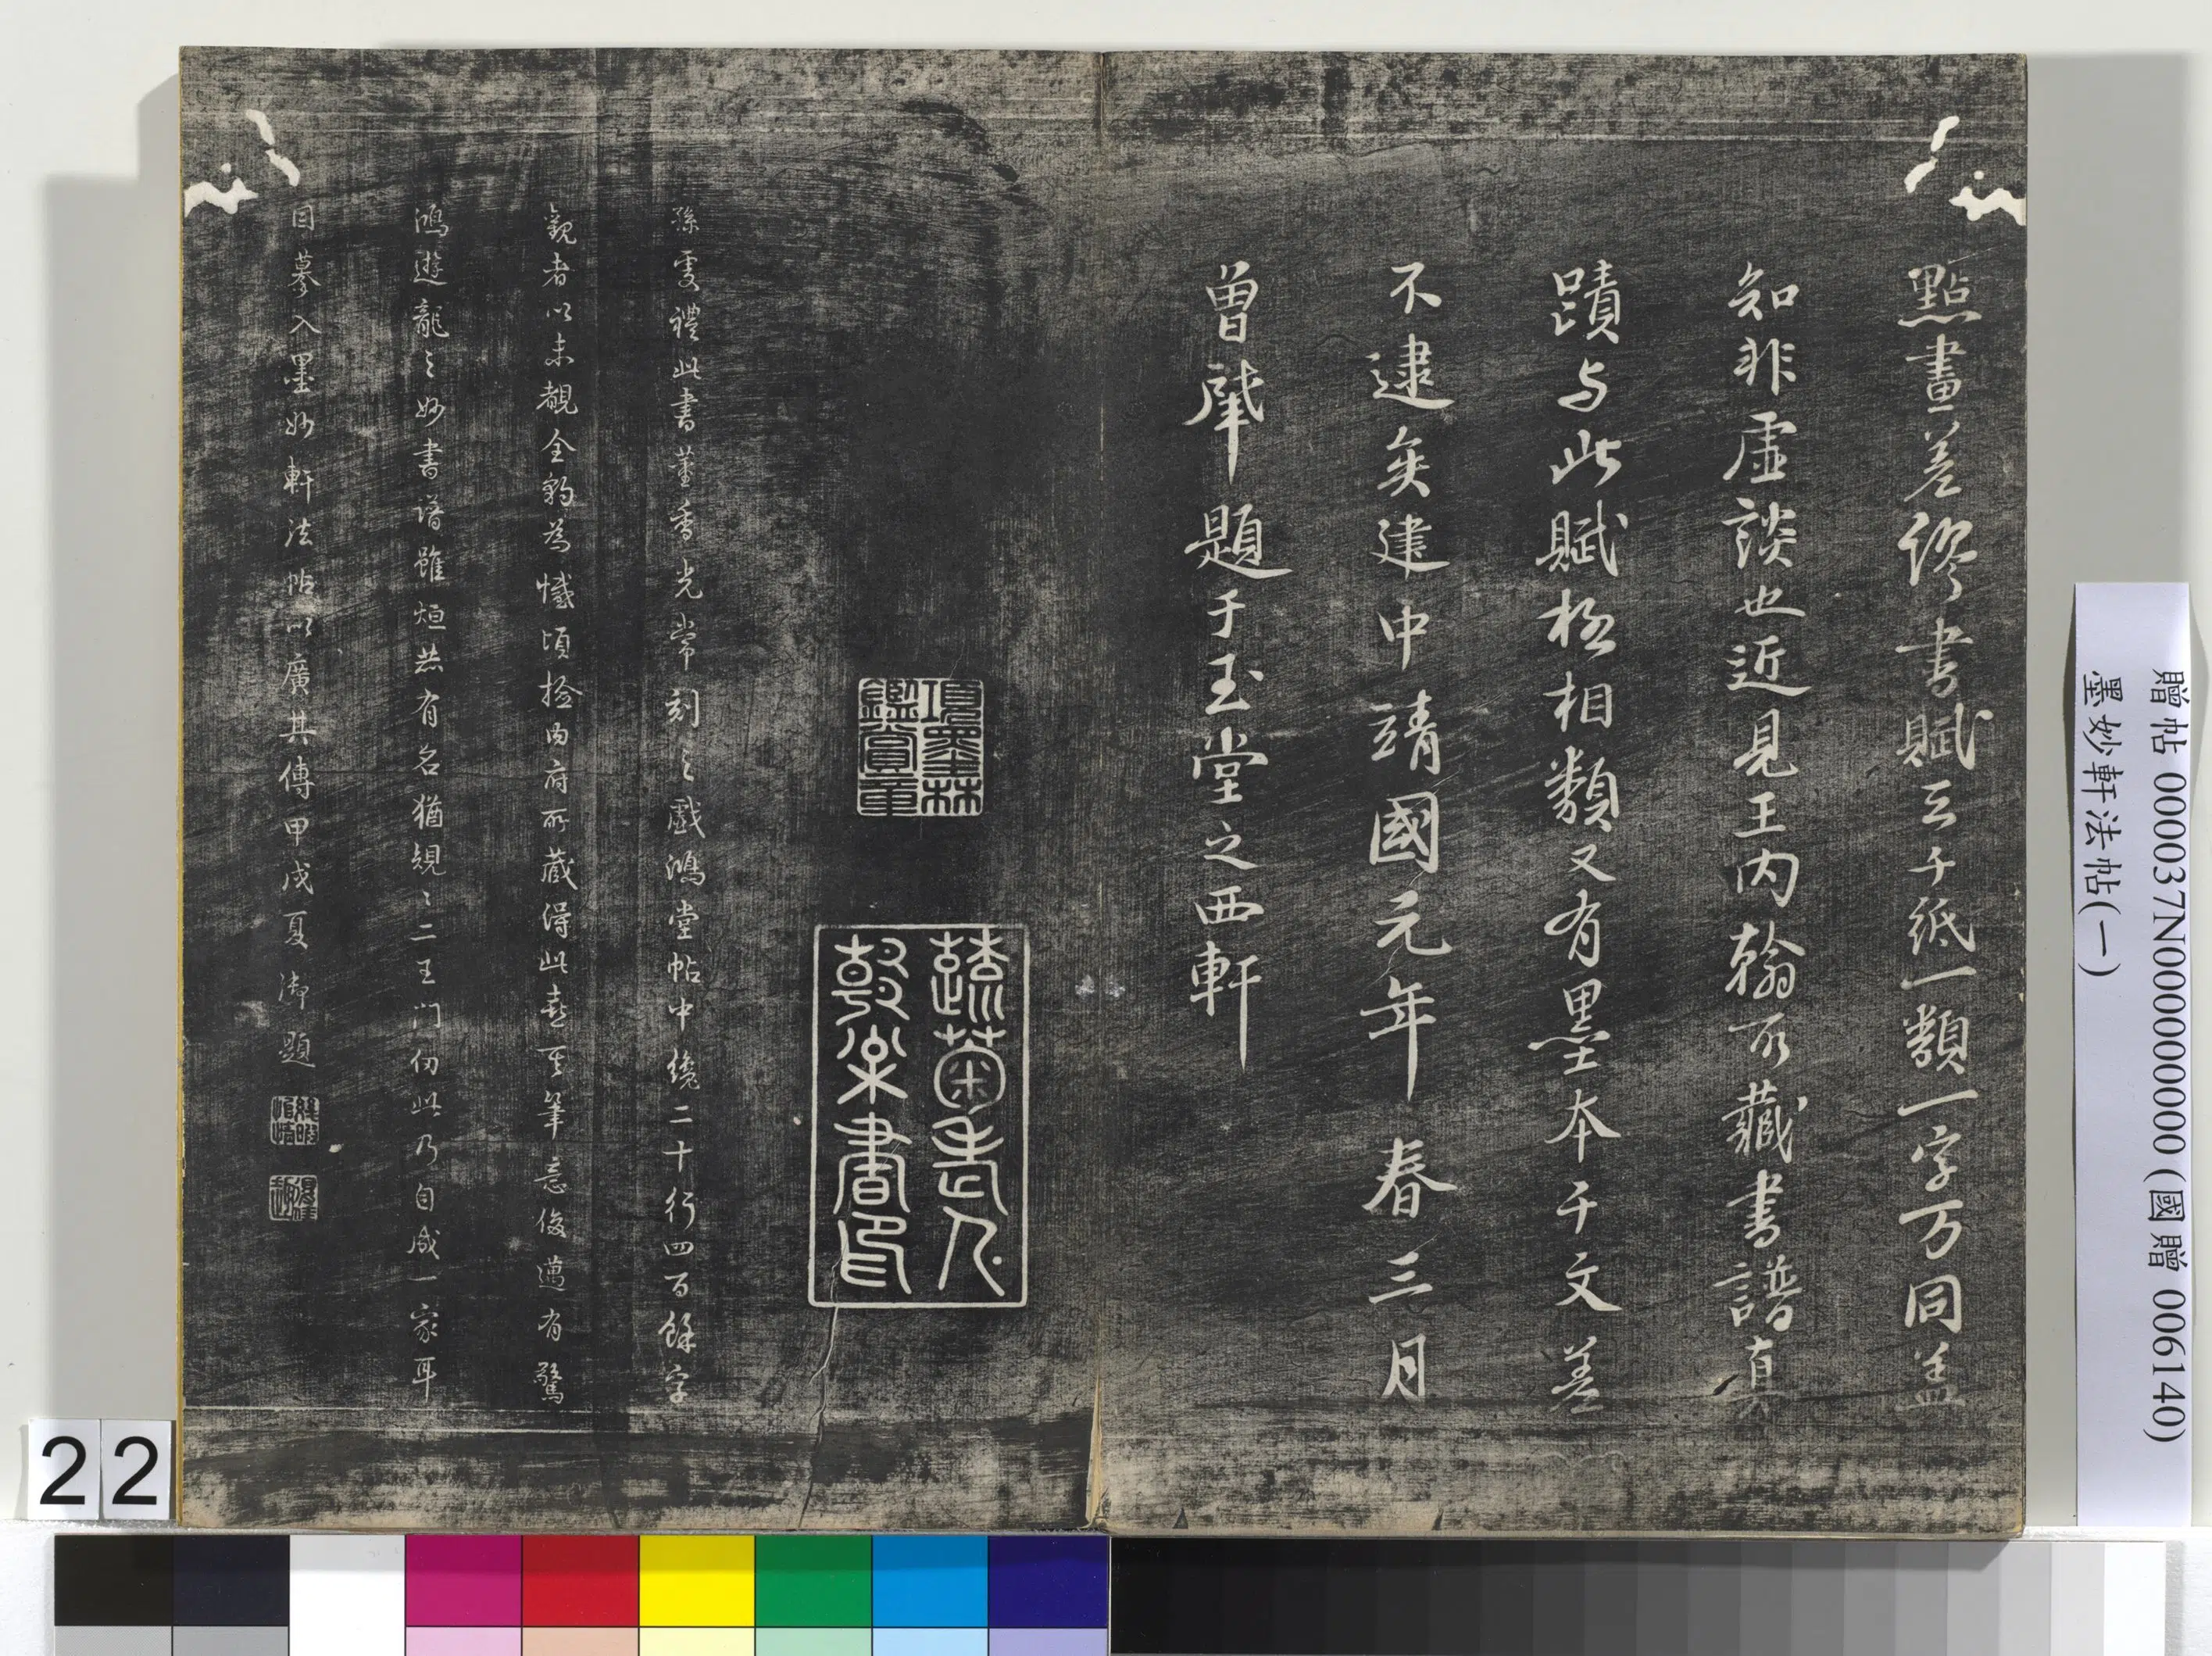 點畫差繆書賦三千紙一類一字万同盖
知非虛談也近見王内翰所藏書譜真
蹟与此賦極相類又有墨本千文差
不逮矣建中靖國元年春三月
曾肇題于玉堂之西軒
項墨林
鑑賞章
蔬菊老人
敦樂書印
孫䖍禮此書董香光常刻之戲鴻堂帖中纔二十行四百餘字
觀者以未覩全豹為憾頃撿内府所藏得此卷其筆意俊邁有驚
鴻遊龍之妙書譜雖烜燕有名猶規〻二王門仞此乃自成一家耳
因摹入墨妙軒法帖以廣其傳甲戌夏御題
贈帖 000037N000000000 (國贈 006140)
墨妙軒法帖(一)
22